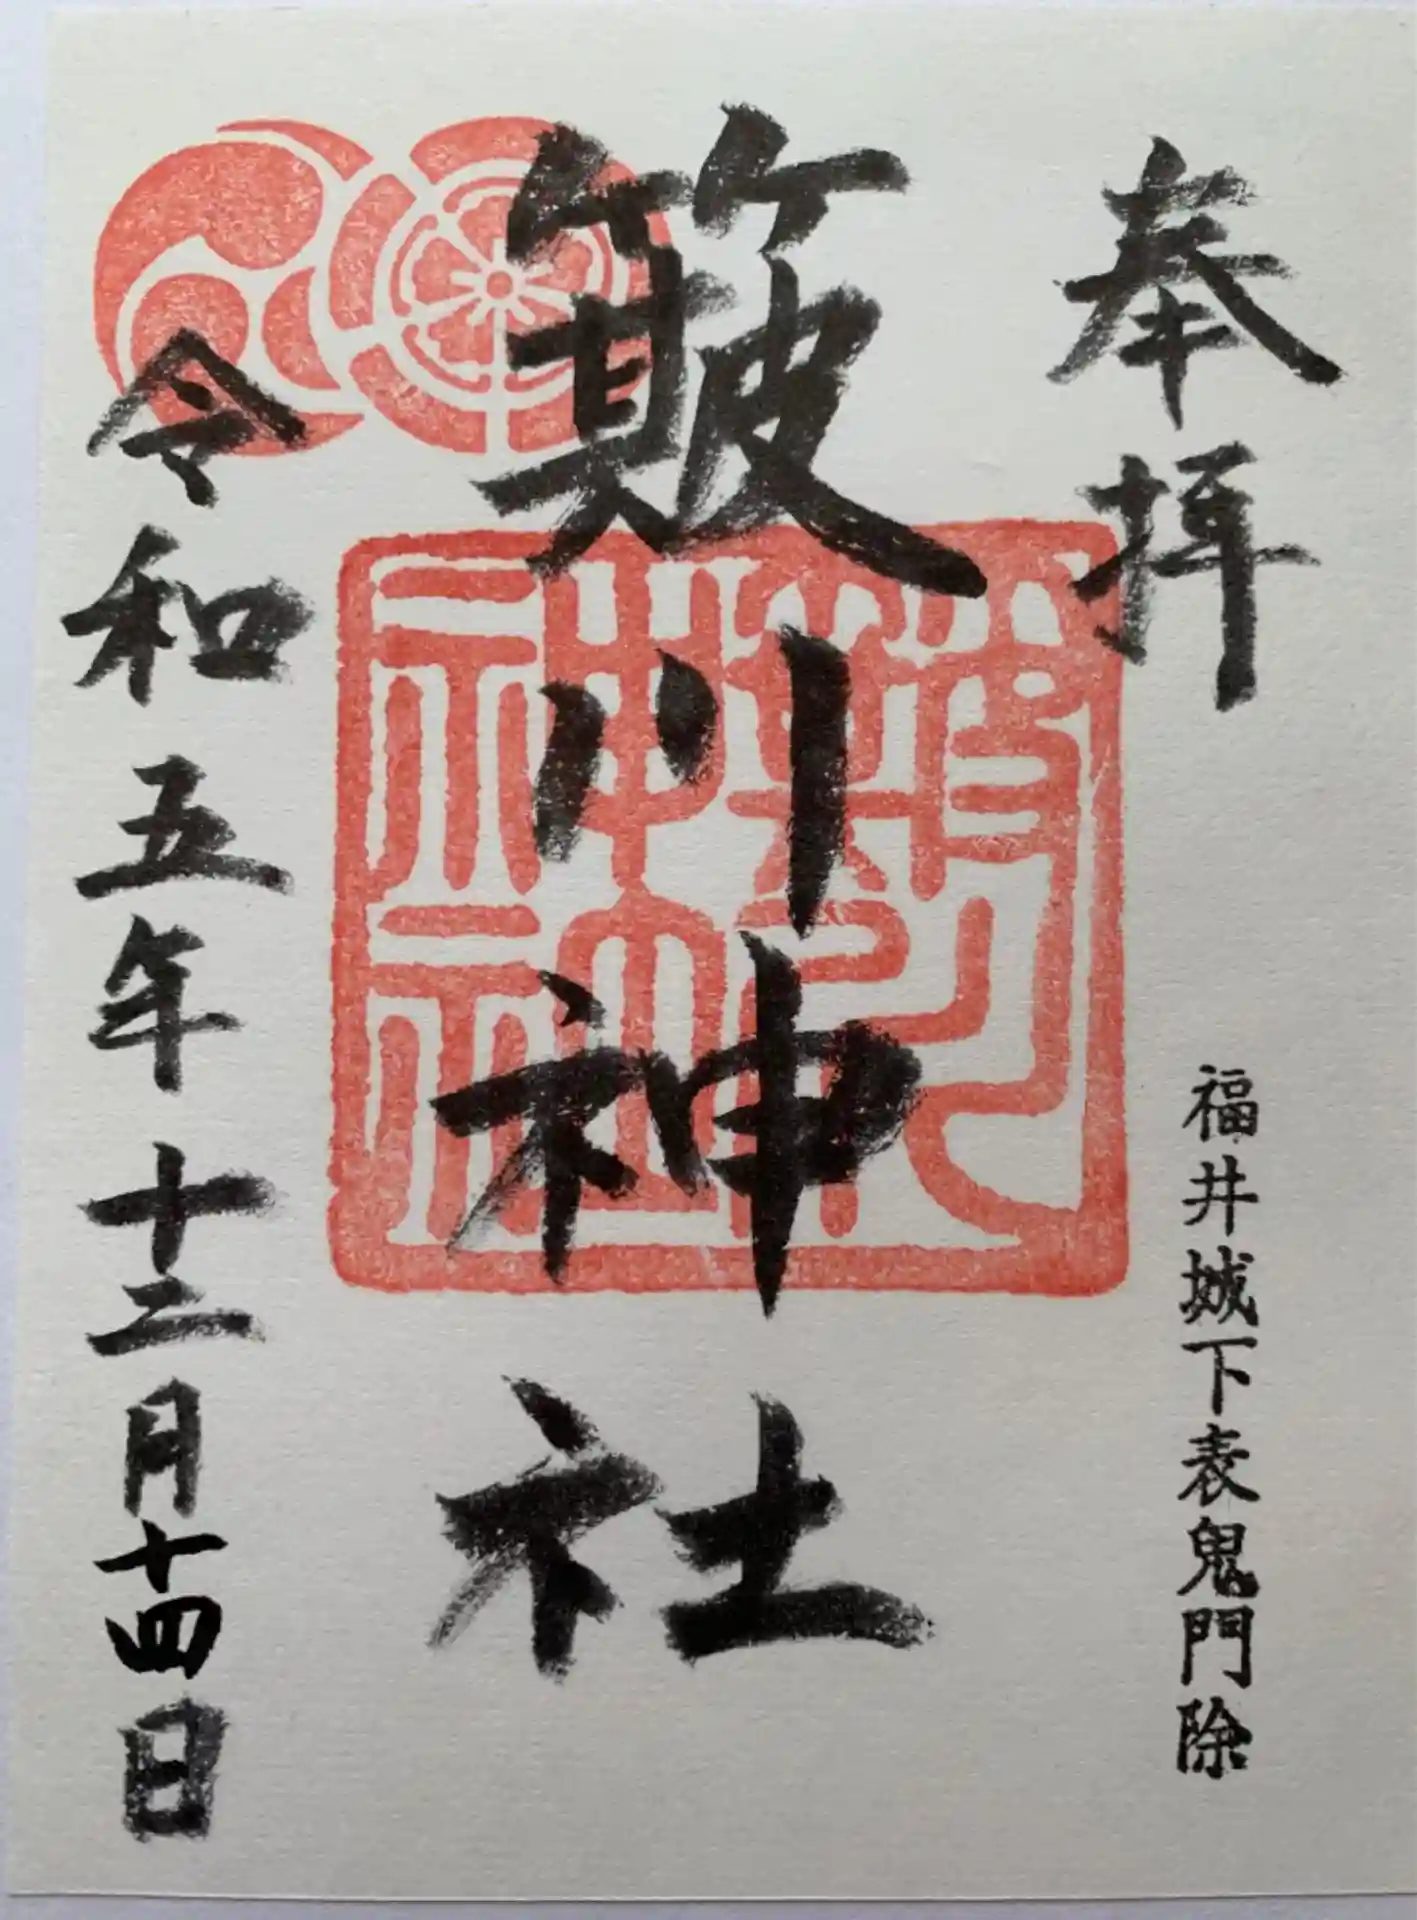 奉拝
福井城下表鬼門除
簸川神社
簸川
神社
令和五年十二月十四日